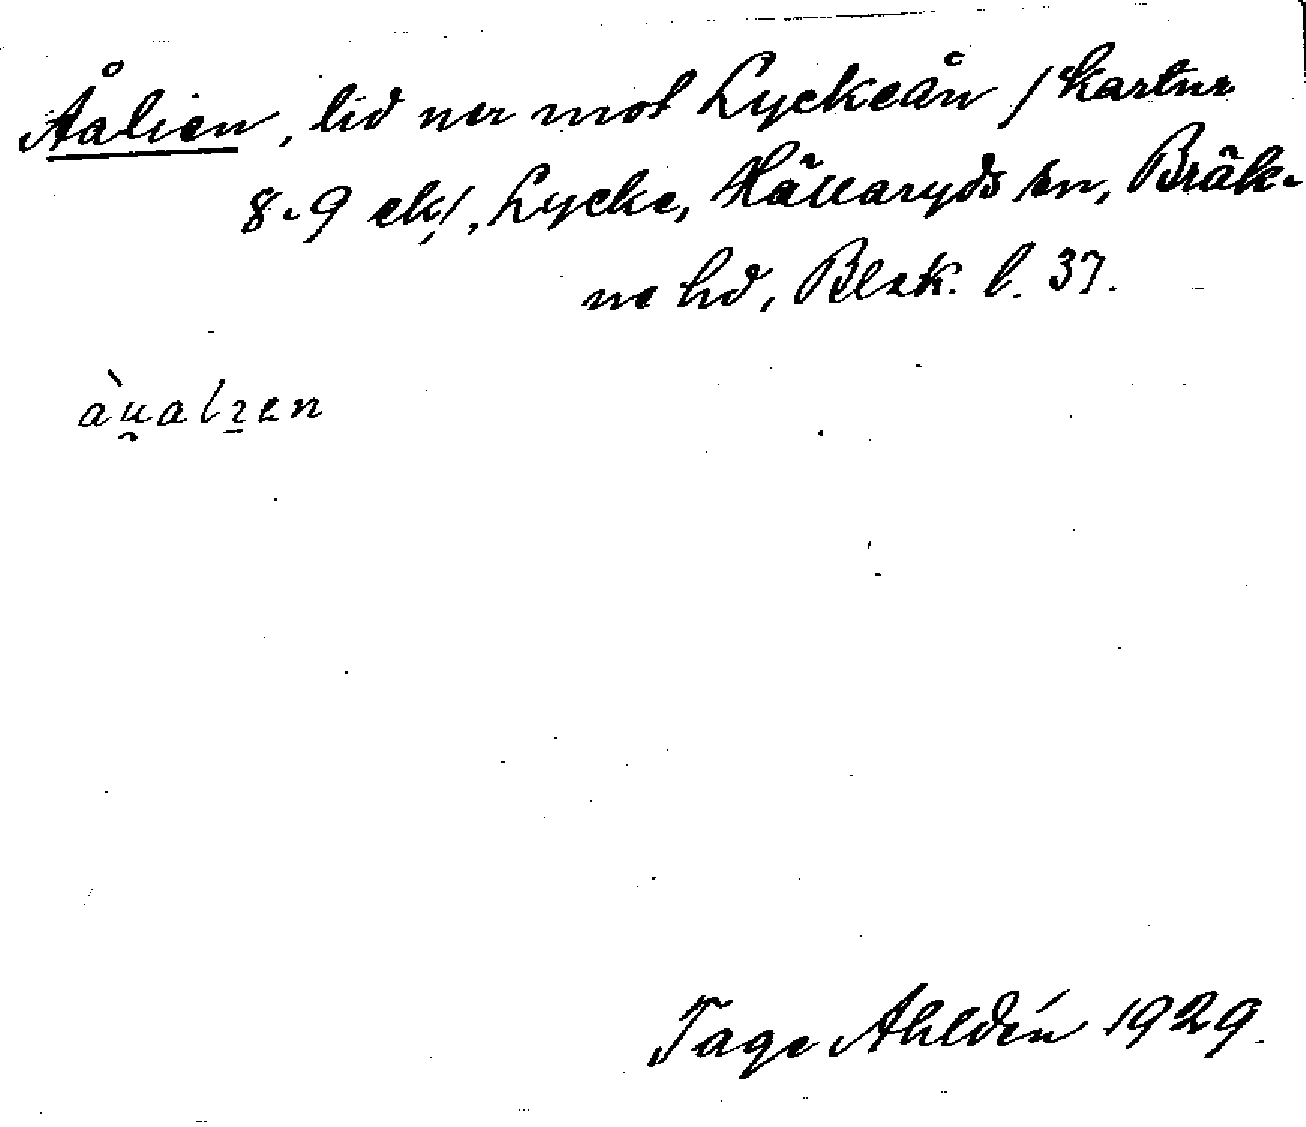 Åalien, lid ner mot Lyckeån / kartnr
8-9 ek/, Lycke, Hällaryds sn, Bräk-
ne hd, Blek. l. 37.
àu̯alɪen
Tage Ahldén 1929.